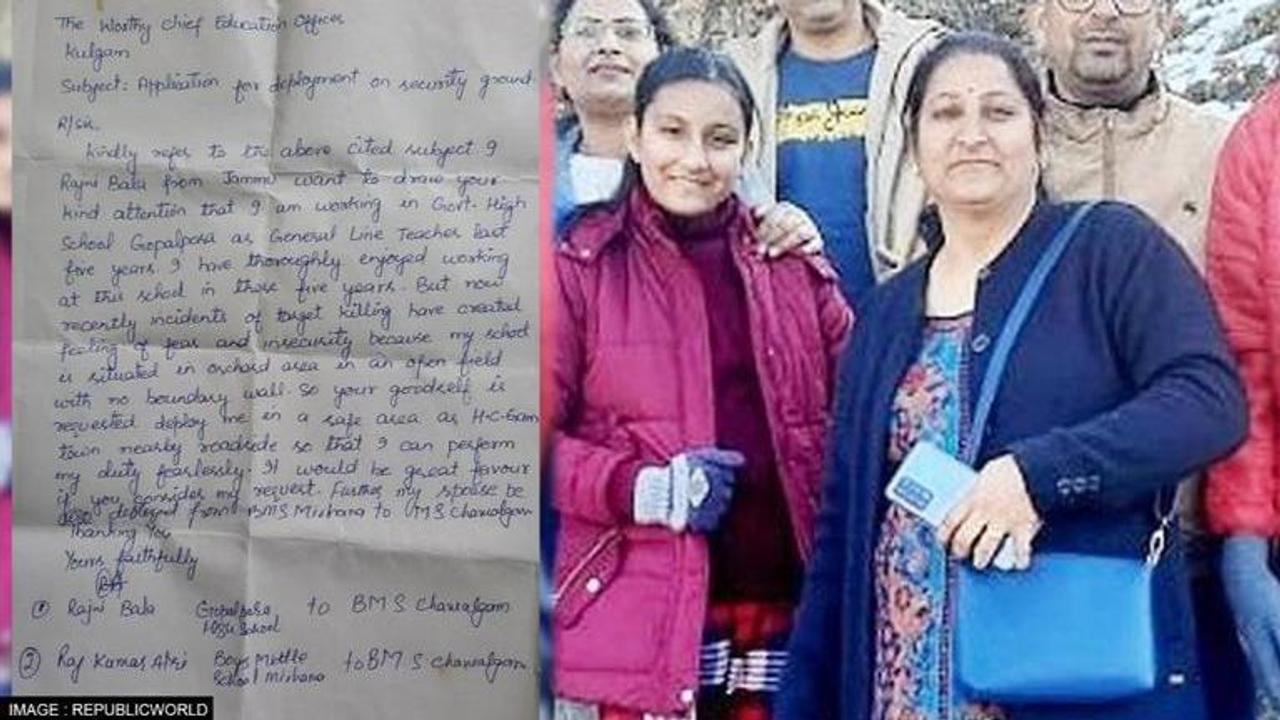 The Worthy Chief Education Officer
Kulgam
Subject: Application for deployment on security ground
R/sir.
Kindly refer to the above cited subject I
Rajni Bala from Jammu want to draw your
kind attention that I am working in Govt. High
School Gopalpora as General Line Teacher last
five years. I have thoroughly enjoyed working
at this school in these five years. But now
recently incidents of target killing have created
feeling of fear and insecurity because my school
is situated in orchard area in an open field
with no boundary wall. So your goodself is
requested deploy me in a safe area as H-C-Gam
town nearby roadside so that I can perform
my duty fearlessly. It would be great favour
if you consider my request. Further my spouse be
deployed from BMS Mirhama to MS Chawalgam
Thanking You
Yours faithfully
① Rajni Bala Gopalpora to BMS Chawalgam
High School
② Raj Kumar Attri Boys Middle to BMS Chawalgam
School Mirhama
IMAGE : REPUBLICWORLD